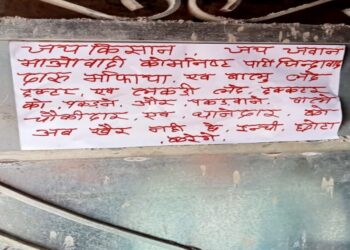 जय किसान.. जय जवान
माओवादी कोमनिस्ट पार्टी जिन्दाबाद
दारु माफीया. एव बालु लोड
ट्रेक्टर. एव लकडी लोड. ट्रेक्टर
का. पकडने. और पकडवाने. वाले
चौकीदार. एव. थानेदार. को
अब खैर नही है. इन्ची छोटा
करेगे.